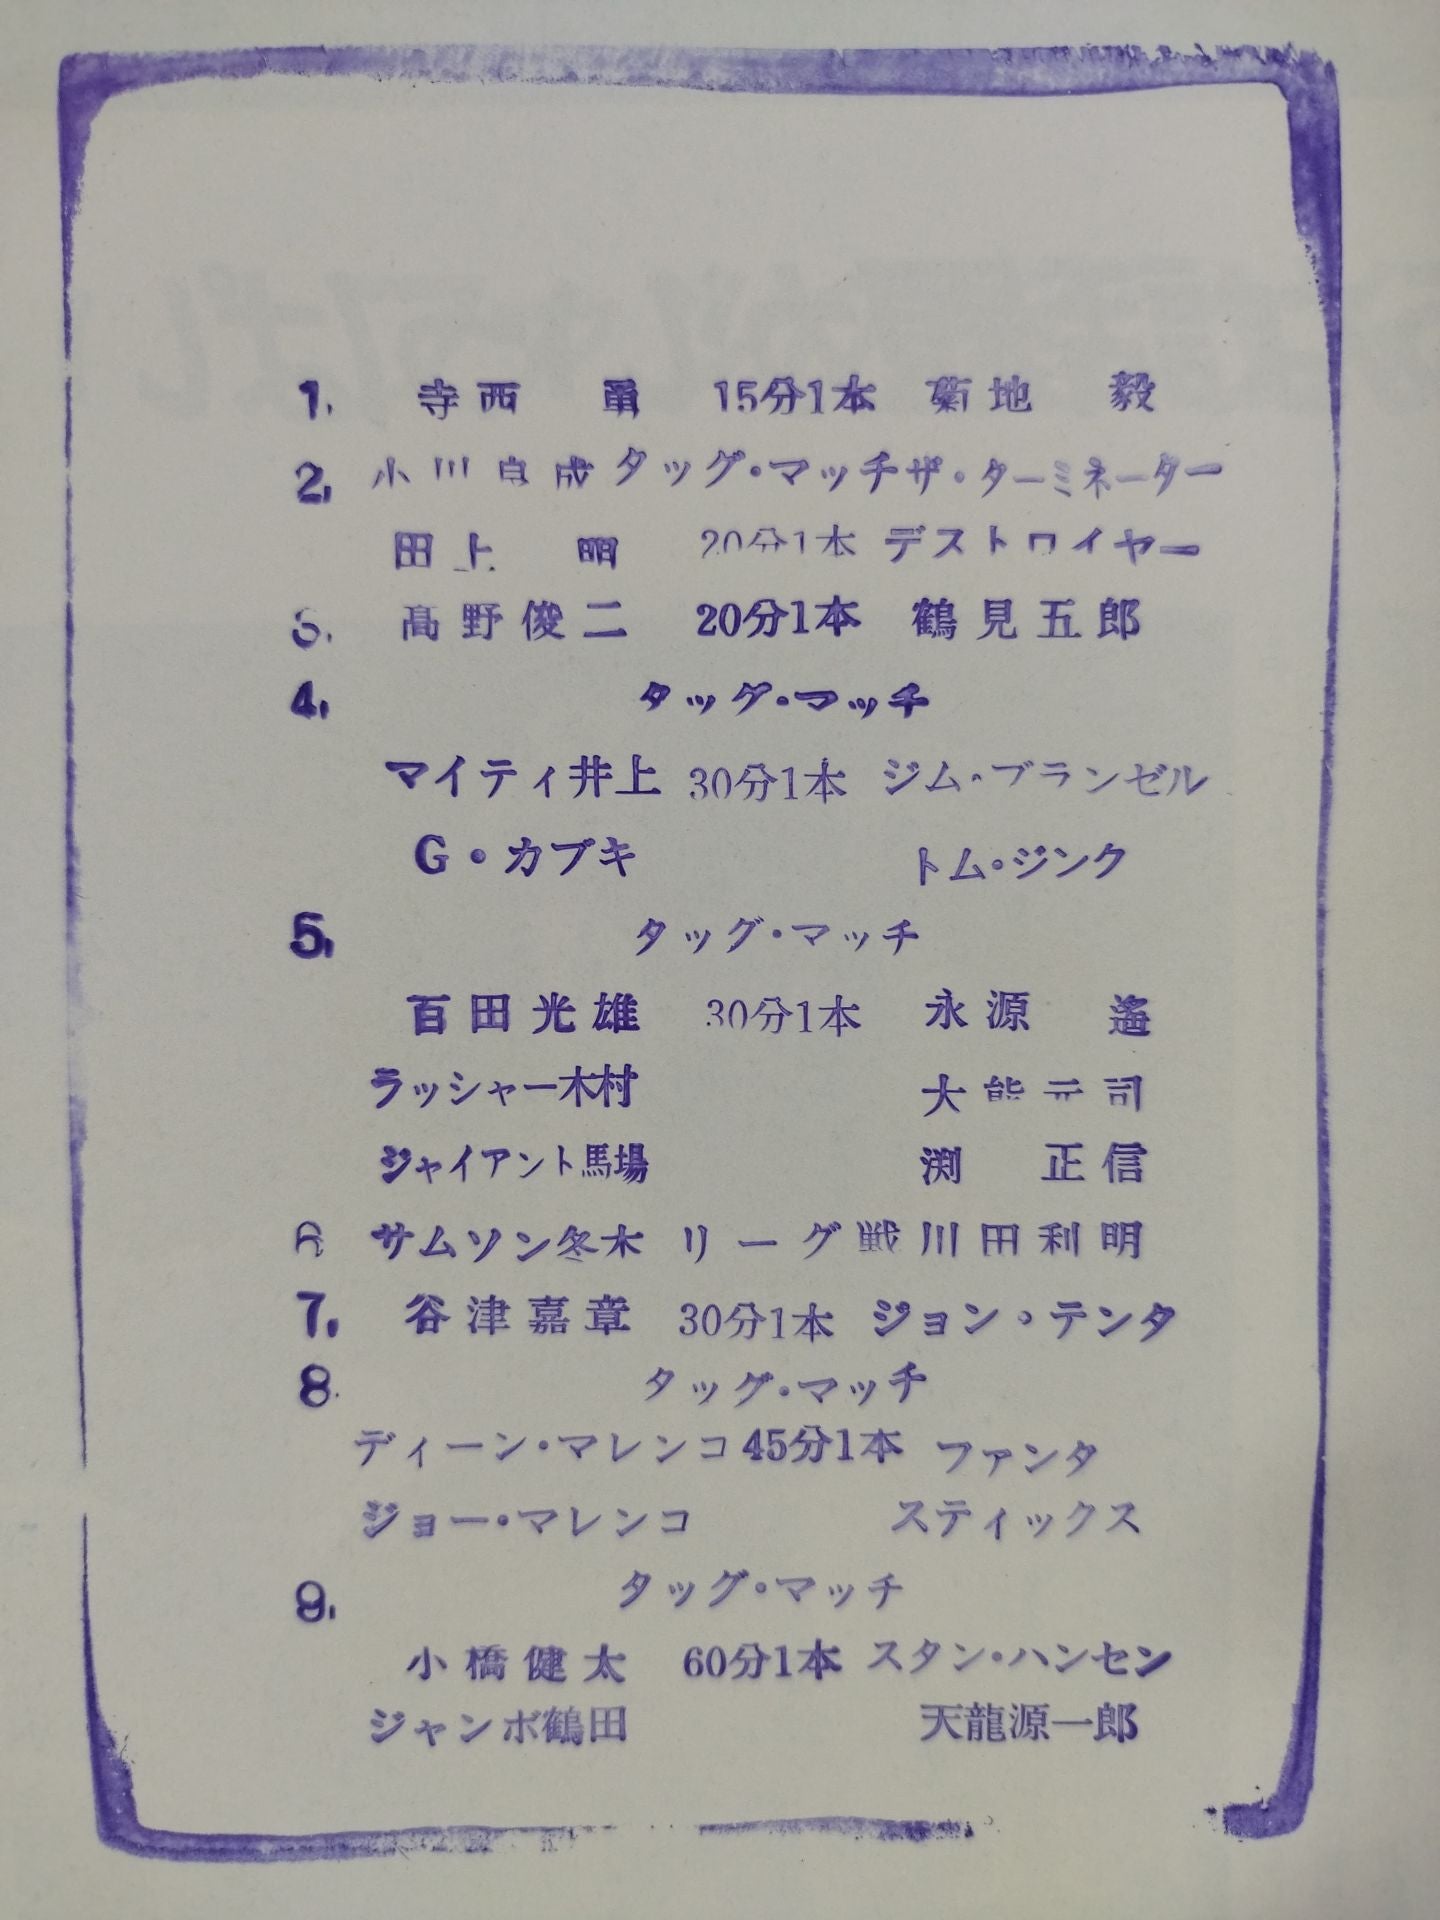 1. 寺西 勇 15分1本 菊地 毅
2. 小川良成 タッグ・マッチ ザ・ターミネーター
田上 明 20分1本 デストロイヤー
3. 高野俊二 20分1本 鶴見五郎
4. タッグ・マッチ
マイティ井上 30分1本 ジム・ブランゼル
G・カブキ トム・ジンク
5. タッグ・マッチ
百田光雄 30分1本 永源 遙
ラッシャー木村 大熊元司
ジャイアント馬場 渕 正信
6 サムソン冬木 リーグ戦 川田利明
7. 谷津嘉章 30分1本 ジョン・テンタ
8. タッグ・マッチ
ディーン・マレンコ 45分1本 ファンタ
ジョー・マレンコ スティックス
9. タッグ・マッチ
小橋健太 60分1本 スタン・ハンセン
ジャンボ鶴田 天龍源一郎